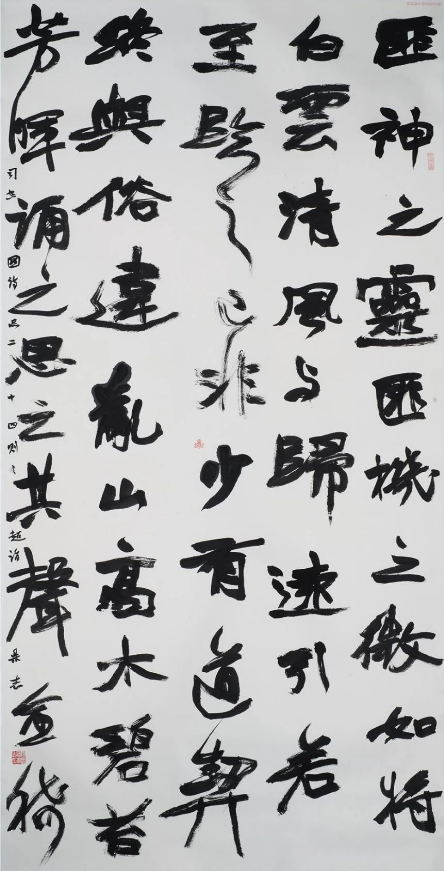 匪神之靈匪機之微如將
白雲清風与歸遠引若
至臨之已非少有道契
終與俗違亂山高木碧苔
芳暉誦之思之其聲愈稀
司空圖詩品二十四則之超詣